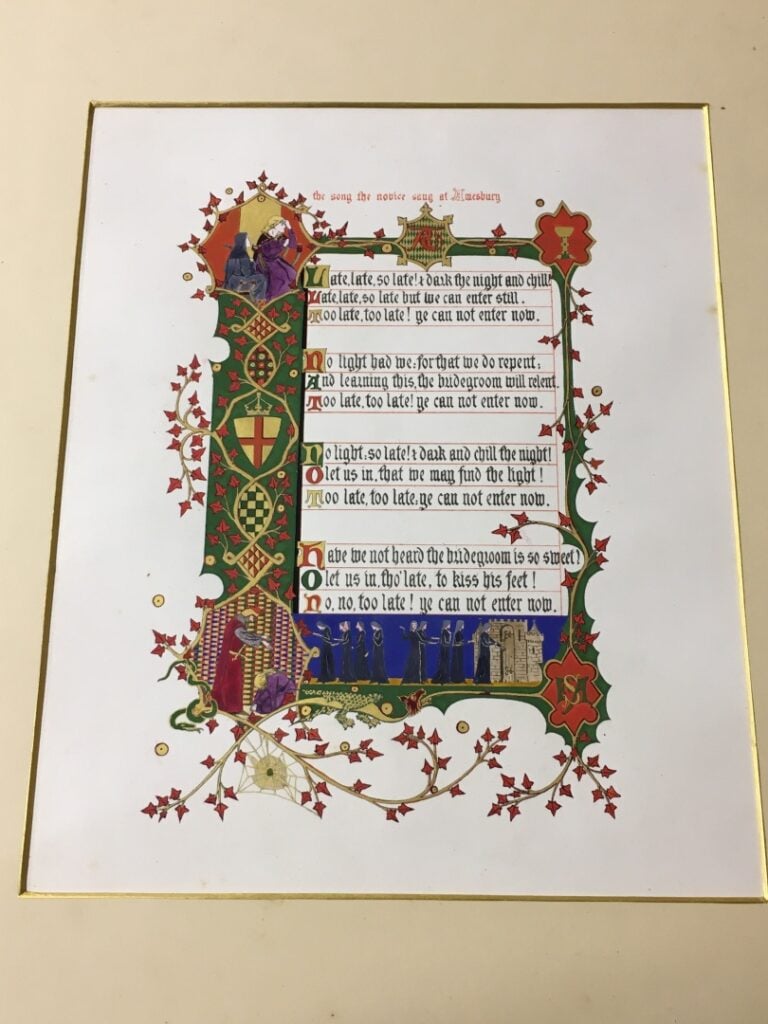 the song the novice sang at Amesbury
Late, late, so late! & dark the night and chill!
Late, late, so late but we can enter still.
Too late, too late! ye can not enter now.
No light had we: for that we do repent;
And learning this, the bridegroom will relent.
Too late, too late! ye can not enter now.
No light; so late! & dark and chill the night!
O let us in, that we may find the light!
Too late, too late, ye can not enter now.
Have we not heard the bridegroom is so sweet?
O let us in, tho' late, to kiss his feet!
No, no, too late! ye can not enter now.